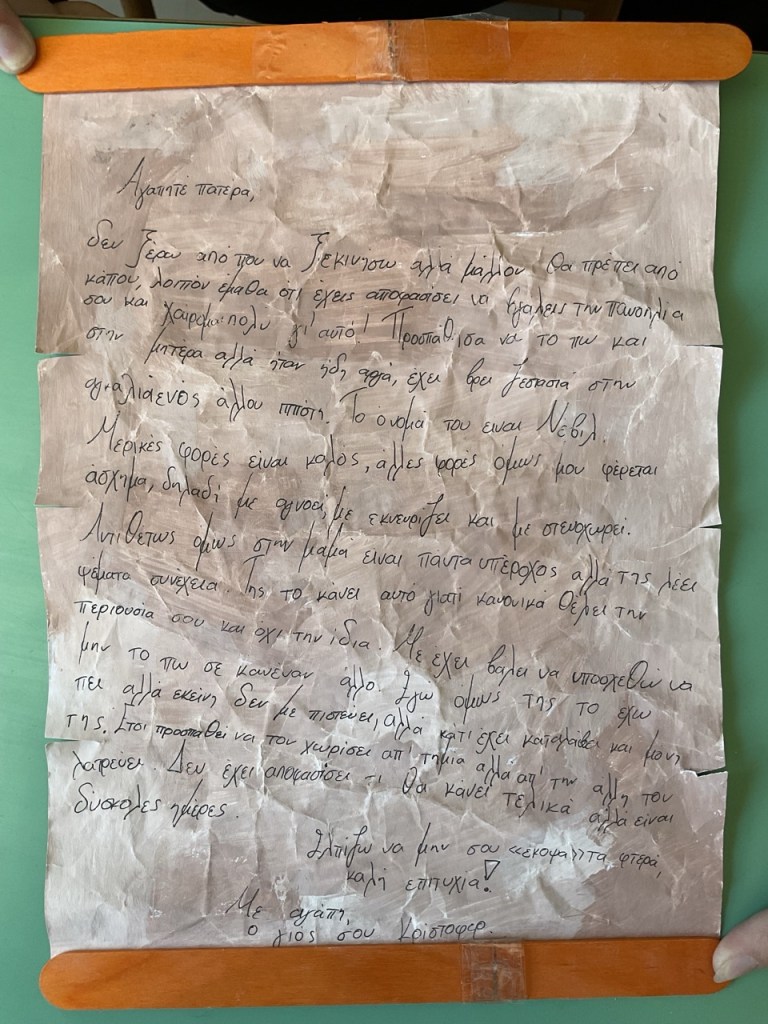 Αγαπητέ πατέρα,
δεν ξέρω από που να ξεκινήσω αλλά μάλλον θα πρέπει από
κάπου, λοιπόν έμαθα ότι έχεις αποφασίσει να βγάλεις την πανοπλία
σου και χαίρομαι πολυ γι' αυτό! Προσπάθισα να το πω και
στην μητέρα αλλά ήταν ήδη αργά, έχει βρει ζεστασιά στην
αγκαλιά ενός άλλου ιππότη. Το όνομά του ειναι Νέβιλ.
Μερικές φορές είναι καλός, άλλες φορές ομως μου φέρεται
άσχημα, δηλαδή με αγνοεί, με εκνευρίζει και με στεναχωρεί.
Αντιθετως ομως στην μαμά ειναι παντα υπέροχος αλλά της λεει
ψέματα συνέχεια. Της το κάνει αυτό γιατί κανονικά θέλει την
περιουσία σου και όχι την ίδια. Με έχει βαλει να υποσχεθώ να
μην το πω σε κανέναν άλλο. Εγω ομως της το εχω
πει αλλά εκείνη δεν με πιστευει, αλλά κάτι έχει καταλάβει και μονη
της. Ετσι προσπαθεί να τον χωρίσει απ' τη μια αλλα απ' την αλλη τον
λατρεύει. Δεν έχει αποφασίσει τι θα κάνει τελικά αλλά είναι
δύσκολες ημέρες.
Ελπίζω να μην σου «εκοψα» τα φτερά,
καλή επιτυχία!
Με αγάπη,
ο γιός σου Κρίστοφερ.